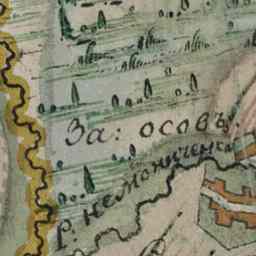 За: осовъ:
Р. немоничен